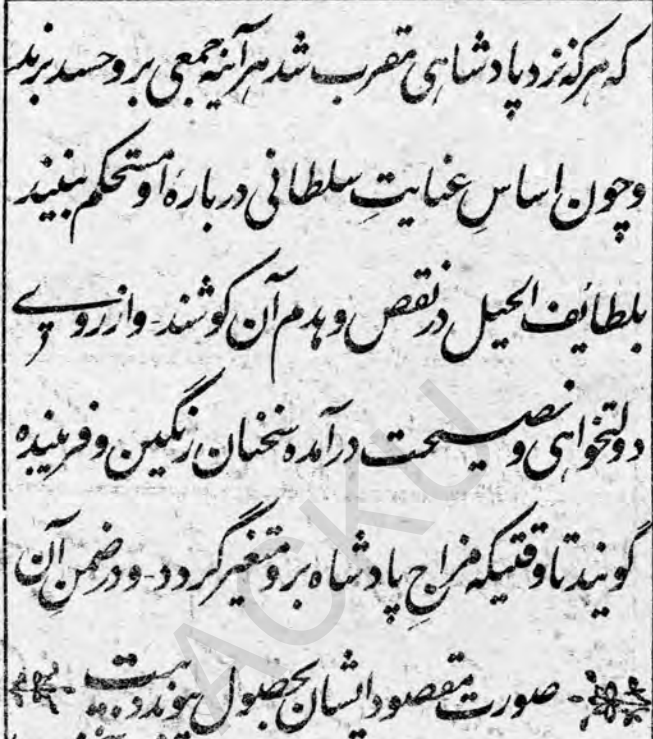 که هرکه نزد پادشاهی مقرب شد هرآینه جمعی برو حسد برند
و چون اساسِ عنایتِ سلطانی دربارهٔ او مستحکم ببینند
بلطایف الحیل در نقص و هدم آن کوشند - و از روی
دولتخواهی و نصیحت درآمده سخنان رنگین و فریبنده
گویند تا وقتیکه مزاجِ پادشاه برو متغیر گردد - و در ضمنِ آن
صورت مقصود ایشان بحصول پیوندد - بیت
ACKU